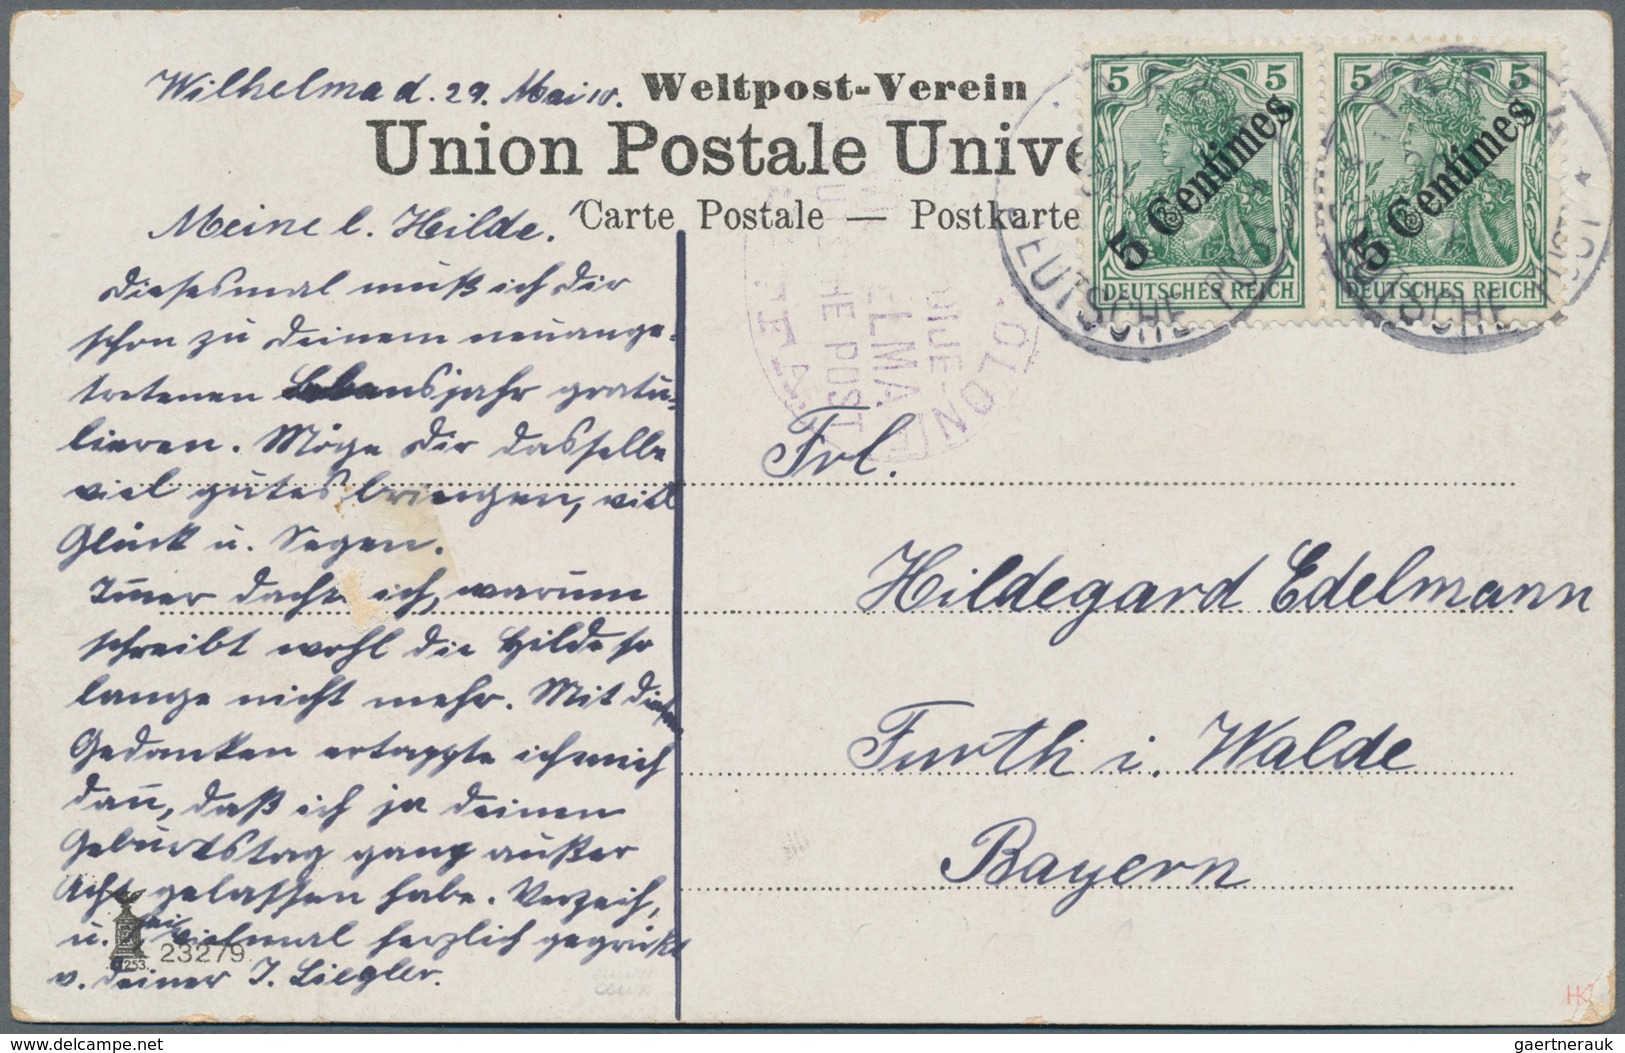 Wilhelma d. 29. Mai 10.
Weltpost-Verein
Union Postale Unive
Carte Postale — Postkarte
5 5
5 Centimes
DEUTSCHES REICH
5 5
5 Centimes
DEUTSCHES REICH
DEUTSCHE POST
DEUTSCHE POST
Meine l. Hilde!
Diesesmal muß ich dir
schon zu deinem neuange-
tretenen Lebensjahr gratu-
lieren. Möge dir dasselbe
viel gutes bringen, viel
Glück u. Segen.
Im̄er dachte ich, warum
schreibt wohl die Hilde so
lange nicht mehr. Mit diesen
Gedanken ertappte ich mich
dan̄, daß ich ja deinen
Geburtstag ganz außer
Acht gelassen habe. Verzeih,
u. sei vielmal herzlich gegrüßt
v. deiner J. Liegler.
Frl.
Hildegard Edelmann
Furth i. Walde
Bayern
253.
23279
HK
delcampe.net
gaertnerauk